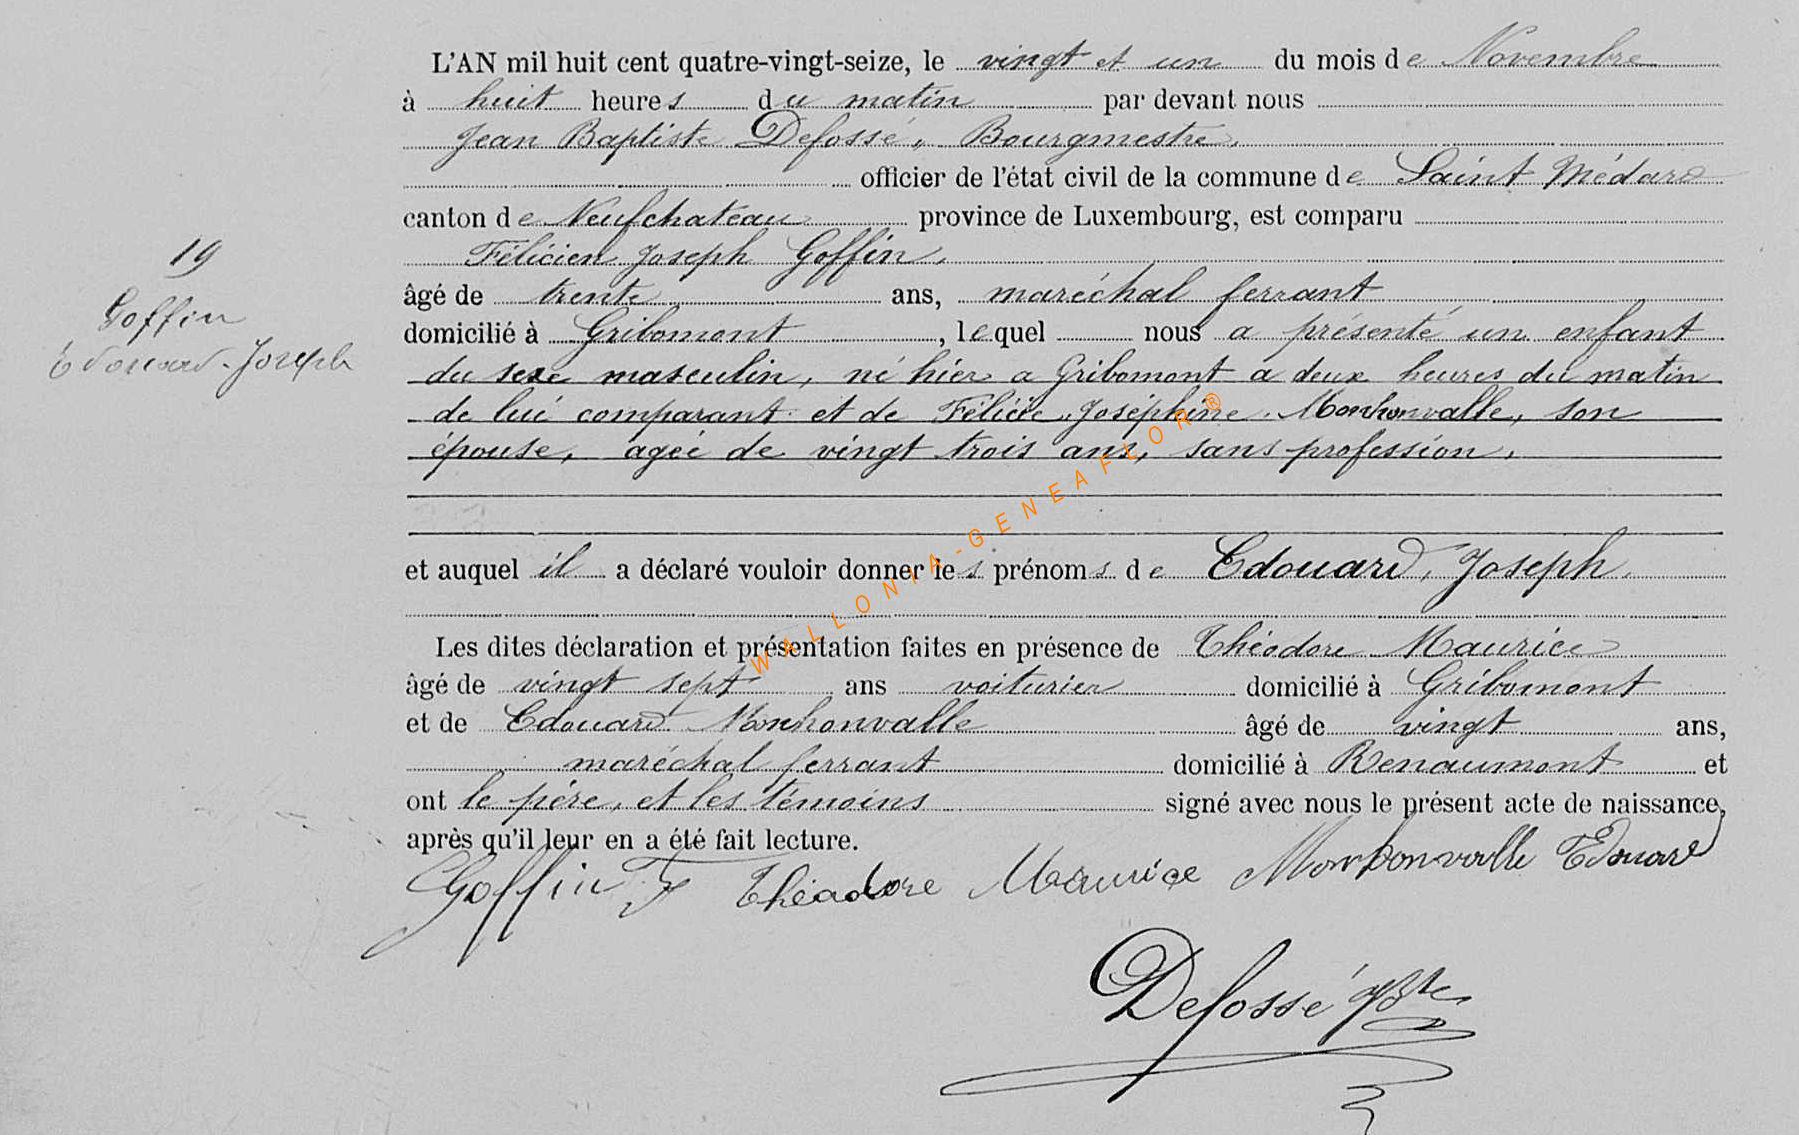 L'AN mil huit cent quatre-vingt-seize, le vingt et un du mois de Novembre
à huit heures du matin par devant nous
Jean Baptiste Defossé, Bourgmestre,
officier de l'état civil de la commune de Saint Médard
canton de Neufchateau province de Luxembourg, est comparu
Félicien Joseph Goffin,
âgé de trente ans, maréchal ferrant
domicilié à Gribomont, lequel nous a présenté un enfant
du sexe masculin, né hier a Gribomont a deux heures du matin
de lui comparant et de Félicie Joséphine Monhonvalle, son
épouse, agée de vingt trois ans, sans profession,
et auquel il a déclaré vouloir donner les prénoms de Edouard, Joseph.
Les dites déclaration et présentation faites en présence de Théodore Maurice
âgé de vingt sept ans voiturier domicilié à Gribomont
et de Edouard Monhonvalle âgé de vingt ans,
maréchal ferrant domicilié à Renaumont et
ont le père, et les témoins signé avec nous le présent acte de naissance,
après qu'il leur en a été fait lecture.
Goffin F Théodore Maurice Monhonvalle Edouard
Defossé JBte
19
Goffin
Edouard-Joseph
WALLONIA-GENEAFLOR®